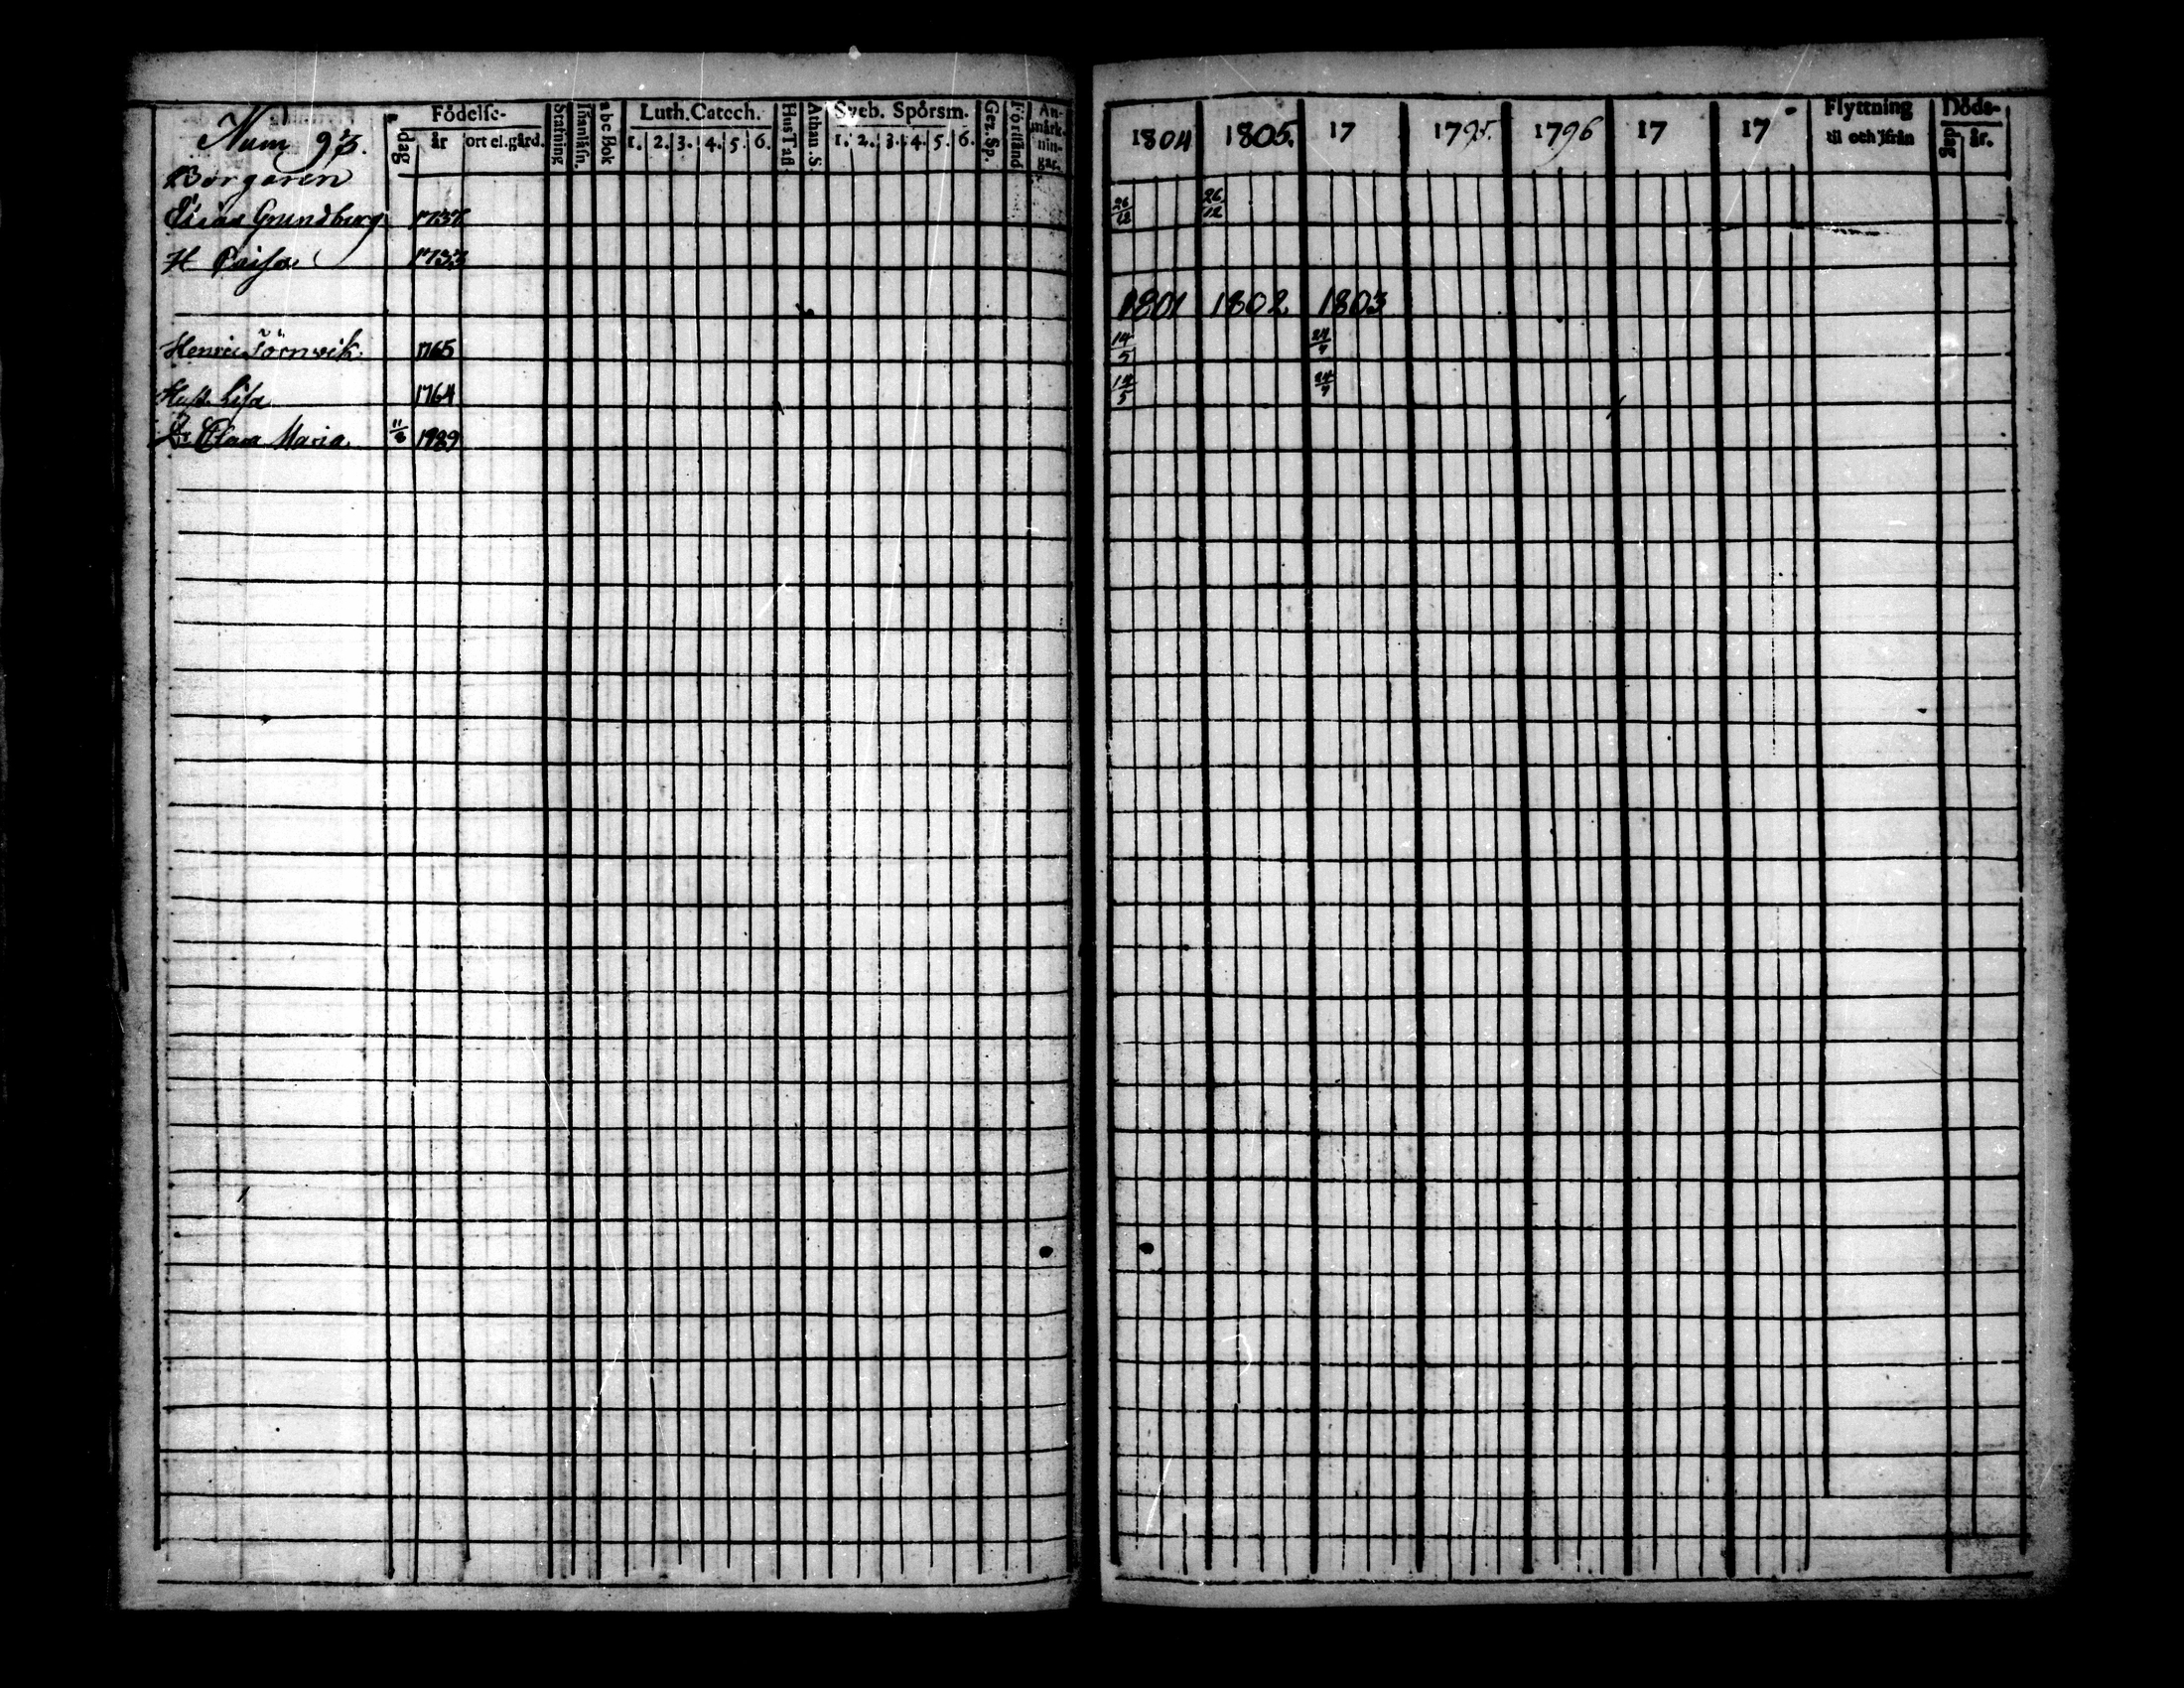 Num 93.
Födelse-
dag
år
ort el. gård.
Stafning
Innanläsn.
abc Bok
Luth. Catech.
1. 2. 3. 4. 5. 6.
Hus Tafl.
Athan. S.
Sveb. Spörsm.
1. 2. 3. 4. 5. 6.
Gez. Sp.
Förstånd
An-
märk-
nin-
gar.
Borgaren
Elias Grundberg 1737
H Caisa 1733
Henric Törnvik 1765
Hust. Lisa 1764
Dr Clara Maria 11/8 1789
1804 1805. 17 1795. 1796 17 17
Flyttning
til och ifrån
Döds-
dag
år.
26/12 26/12
1801 1802. 1803
14/5 24/7
14/5 24/7